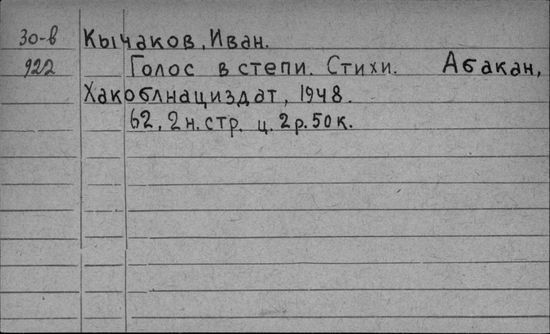 30-в Кычаков, Иван.
922 Голос в степи. Стихи. Абакан,
Хакоблнациздат, 1948.
62, 2 н. стр. ц. 2 р. 50 к.